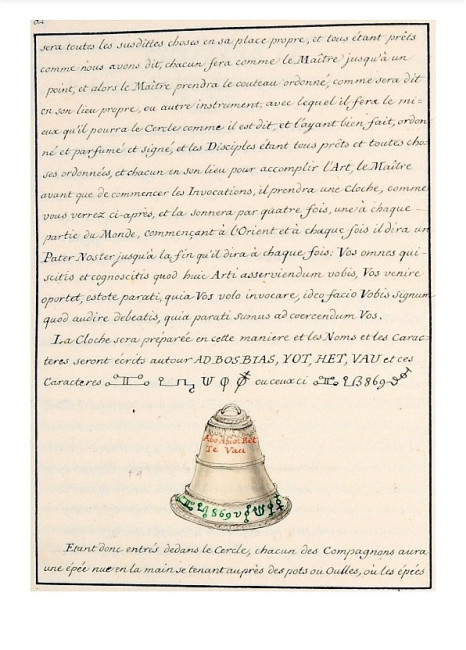 64
sera toutes les susdittes choses en sa place propre, et tous étant prêts
comme nous avons dit, chacun sera comme le Maître jusqu'à un
point, et alors le Maître prendra le couteau ordonné, comme sera dit
en son lieu propre, ou autre instrument, avec lequel il fera le mi=
eux qu'il pourra le Cercle comme il est dit, et l'ayant bien fait, ordon=
né et parfumé et signé, et les Disciples étant tous prêts et toutes cho=
ses ordonnées, et chacun en son lieu pour accomplir l'Art, le Maître
avant que de commencer les Invocations, il prendra une Cloche, comme
vous verrez ci-après, et la sonnera par quatre fois, une à chaque
partie du Monde, commençant à l'Orient et à chaque fois il dira un
Pater Noster jusqu'à la fin qu'il dira à chaque fois: Vos omnes qui=
scitis et cognoscitis quod huic Arti asserviendum vobis, Vos venire
oportet, estote parati, quia Vos volo invocare, ideo facio Vobis signum
quod audire debeatis, quia parati sumus ad coercendum Vos.
La Cloche sera préparée en cette maniere et les Noms et les Carac=
teres seront écrits autour AD.BOS.BIAS, YOT, HET, VAU et ces
Caracteres ou ceux ci 869
Te Vau
869
Etant donc entrés dedans le Cercle, chacun des Compagnons aura
une épée nue en la main se tenant auprès des pots ou Oulles, où les épées